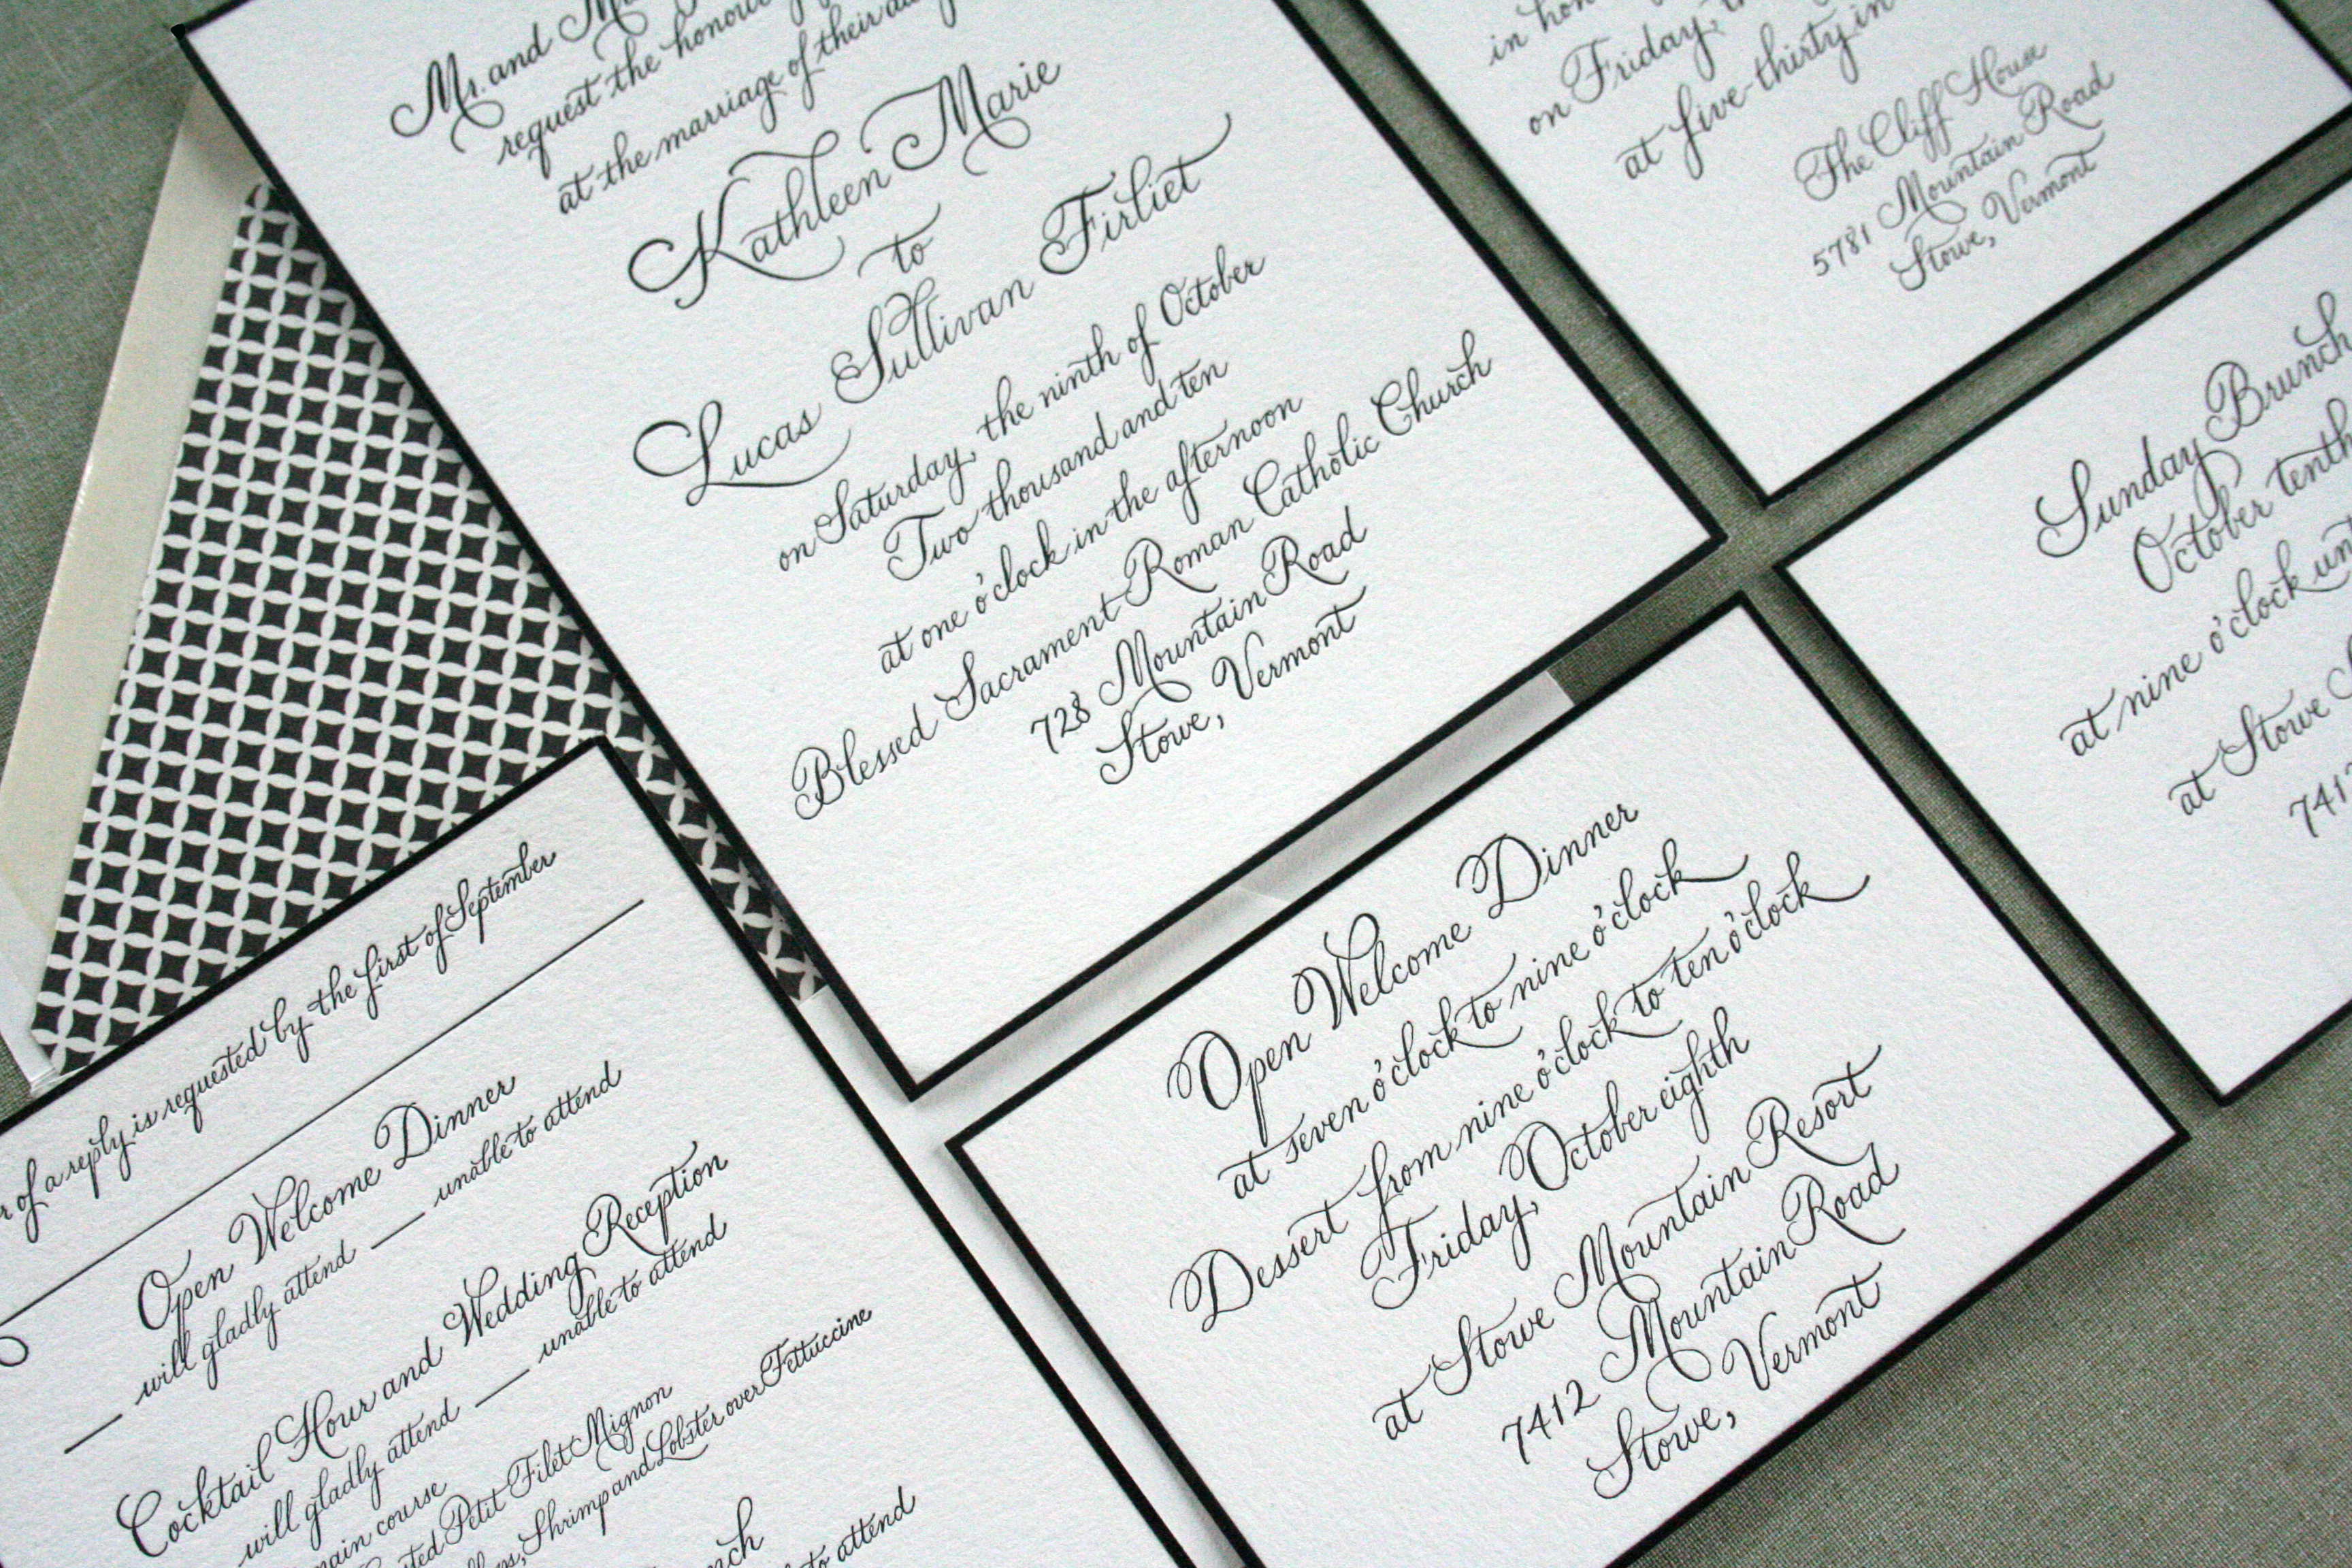 Mr. and
request the honour
at the marriage of their
Kathleen Marie
to
Lucas Sullivan Firliet
on Saturday, the ninth of October
Two thousand and ten
at one o'clock in the afternoon
Blessed Sacrament Roman Catholic Church
728 Mountain Road
Stowe, Vermont
in
on Friday,
at five-thirty in
The Cliff House
5781 Mountain Road
Stowe, Vermont
Sunday Brunch
October tenth
at nine o'clock
at Stowe
741
of a reply is requested by the first of September
Open Welcome Dinner
will gladly attend unable to attend
Cocktail Hour and Wedding Reception
will gladly attend unable to attend
course
Petit Filet Mignon
Shrimp and Lobster over Fettuccine
to attend
Open Welcome Dinner
at seven o'clock to nine o'clock
Dessert from nine o'clock to ten o'clock
Friday, October eighth
at Stowe Mountain Resort
7412 Mountain Road
Stowe, Vermont